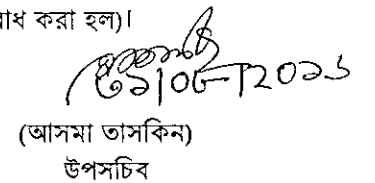 াধ করা হল)।
৩১|০৮|২০১৬
(আসমা তাসকিন)
উপসচিব